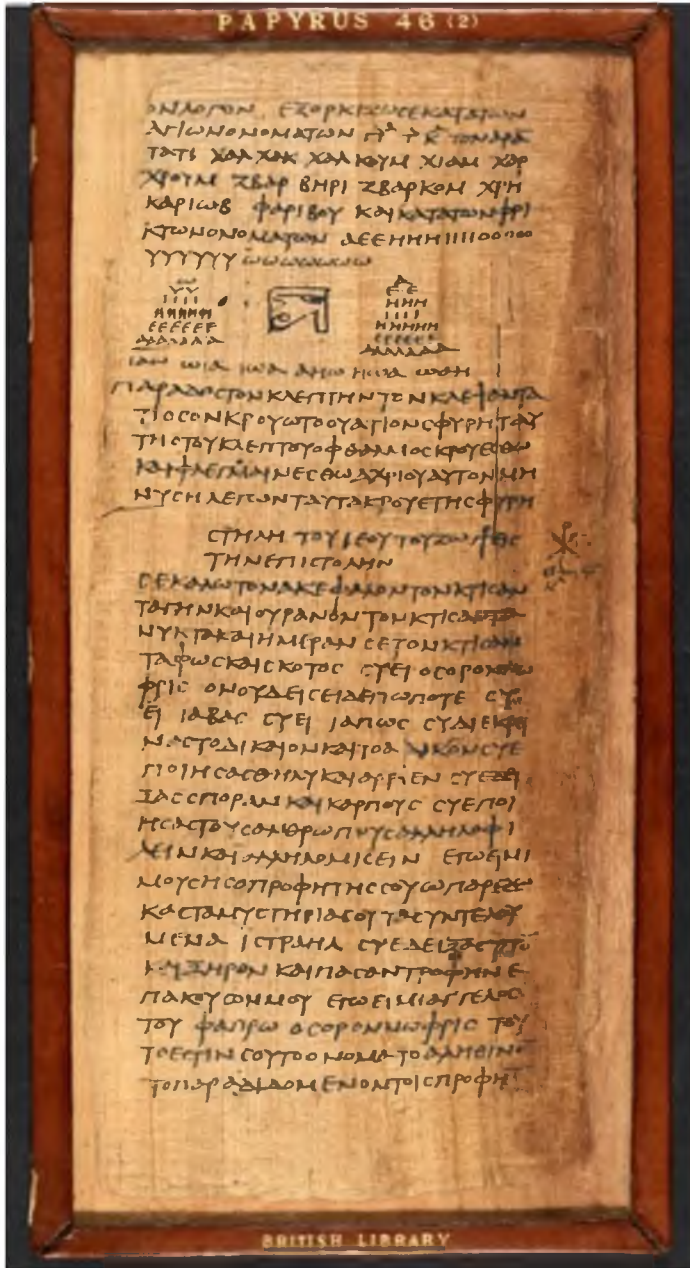 PAPYRUS 46 (2)
ΟΝΛΟΓΟΝ ΕΞΟΡΚΙΖΩϹΕΚΑΤΑΤΩΝ
ΑΓΙΩΝΟΝΟΜΑΤΩΝ
ΤΑΤΙ ΧΑΛΧΑΚ ΧΑΛΚΟΥΜ ΧΙΑΜ ΧΑΡ
ΧΡΟΥΜ ΖΒΑΡ ΒΗΡΙ ΖΒΑΡΚΟΜ ΧΡΗ
ΚΑΡΙΩΒ ΦΑΡΙΒΟΥ ΚΑΙΚΑΤΑΤΩΝΦΡΙ
ΚΤΩΝΟΝΟΜΑΤΩΝ ΑΕΕΗΗΗΙΙΙΙΟΟΟΟΟ
ΥΥΥΥΥΥ ΩΩΩΩΩΩΩ
Ω Α
ΥΥ ΕΕ
ΙΙΙΙ ΗΗΗ
ΗΗΗΗΗ ΙΙΙΙ
ΕΕΕΕΕΕ ΗΗΗΗΗ
ΑΑΑΑΑΑ ΕΕΕΕΕΕ
ΑΑΑΑΑΑ
ΙΑΩ ΩΙΑ ΙΩΑ ΑΗΩ ΗΩΑ ΩΑΗ
ΠΑΡΑΔΟϹΤΟΝΚΛΕΠΤΗΝΤΟΝΚΛΕΨΑΝΤΑ
ΤΙΟϹΟΝΚΡΟΥΩΤΟΟΥΑΤΙΟΝϹΦΥΡΗΤΑΥ
ΤΗΟΤΟΥΚΛΕΠΤΟΥΟΦΘΑΛΜΟϹΚΡΟΥΕϹΘΩ
ΚΑΙΦΛΕΓΜΑΙΝΕϹΘΩΑΧΡΙΟΥΑΥΤΟΝΜΗ
ΝΥϹΗ ΛΕΓΩΝΤΑΥΤΑΚΡΟΥΕΤΗϹΦΥΡΗ
ϹΤΗΛΗ ΤΟΥΙΕΟΥΤΟΥΖΩΓΡΕΙϹ
ΤΗΝΕΠΙϹΤΟΛΗΝ
ϹΕΚΑΛΩΤΟΝΑΚΕΦΑΛΟΝΤΟΝΚΤΙϹΑΝ
ΤΑΓΗΝΚΑΙΟΥΡΑΝΟΝΤΟΝΚΤΙϹΑΝΤΑ
ΝΥΚΤΑΚΑΙΗΜΕΡΑΝ ϹΕΤΟΝΚΤΙϹΑΝ
ΤΑΦΩϹΚΑΙϹΚΟΤΟϹ ϹΥΕΙ ΟϹΟΡΟΝΝΩ
ΦΡΙϹ ΟΝΟΥΔΕΙϹΕΙΔΕΠΩΠΟΤΕ ϹΥ
ΕΙ ΙΑΒΑϹ ϹΥΕΙ ΙΑΠΩϹ ϹΥΔΙΕΚΡΙ
ΝΑϹΤΟΔΙΚΑΙΟΝΚΑΙΤΟΑΔΙΚΟΝϹΥΕ
ΠΟΙΗϹΑϹΘΗΛΥΚΑΙΑΡΡΕΝ ϹΥΕΔΕΙ
ΞΑϹϹΠΟΡΑΝΚΑΙΚΑΡΠΟΥϹ ϹΥΕΠΟΙ
ΗϹΑϹΤΟΥϹΑΝΘΡΩΠΟΥϹΑΛΛΗΛΟΦΙ
ΛΕΙΝΚΑΙΑΛΛΗΛΟΜΙϹΕΙΝ ΕΓΩΕΙΜΙ
ΜΟΥϹΗϹΟΠΡΟΦΗΤΗϹϹΟΥΩΠΑΡΕΔΩ
ΚΑϹΤΑΜΥϹΤΗΡΙΑϹΟΥΤΑϹΥΝΤΕΛΟΥ
ΜΕΝΑ ΙϹΤΡΑΗΛ ϹΥΕΔΕΙΞΑϹΥΓΡΟ
ΚΑΙΞΗΡΟΝ ΚΑΙΠΑϹΑΝΤΡΟΦΗΝ Ε
ΠΑΚΟΥϹΟΝΜΟΥ ΕΓΩΕΙΜΙΑΓΓΕΛΟϹ
ΤΟΥ ΦΑΠΡΩ ΟϹΟΡΟΝΝΩΦΡΙϹ ΤΟΥ
ΤΟΕϹΤΙΝϹΟΥΤΟΟΝΟΜΑΤΟΑΛΗΘΙΝΟ
ΤΟΠΑΡΑΔΙΔΟΜΕΝΟΝΤΟΙϹΠΡΟΦΗ
BRITISH LIBRARY